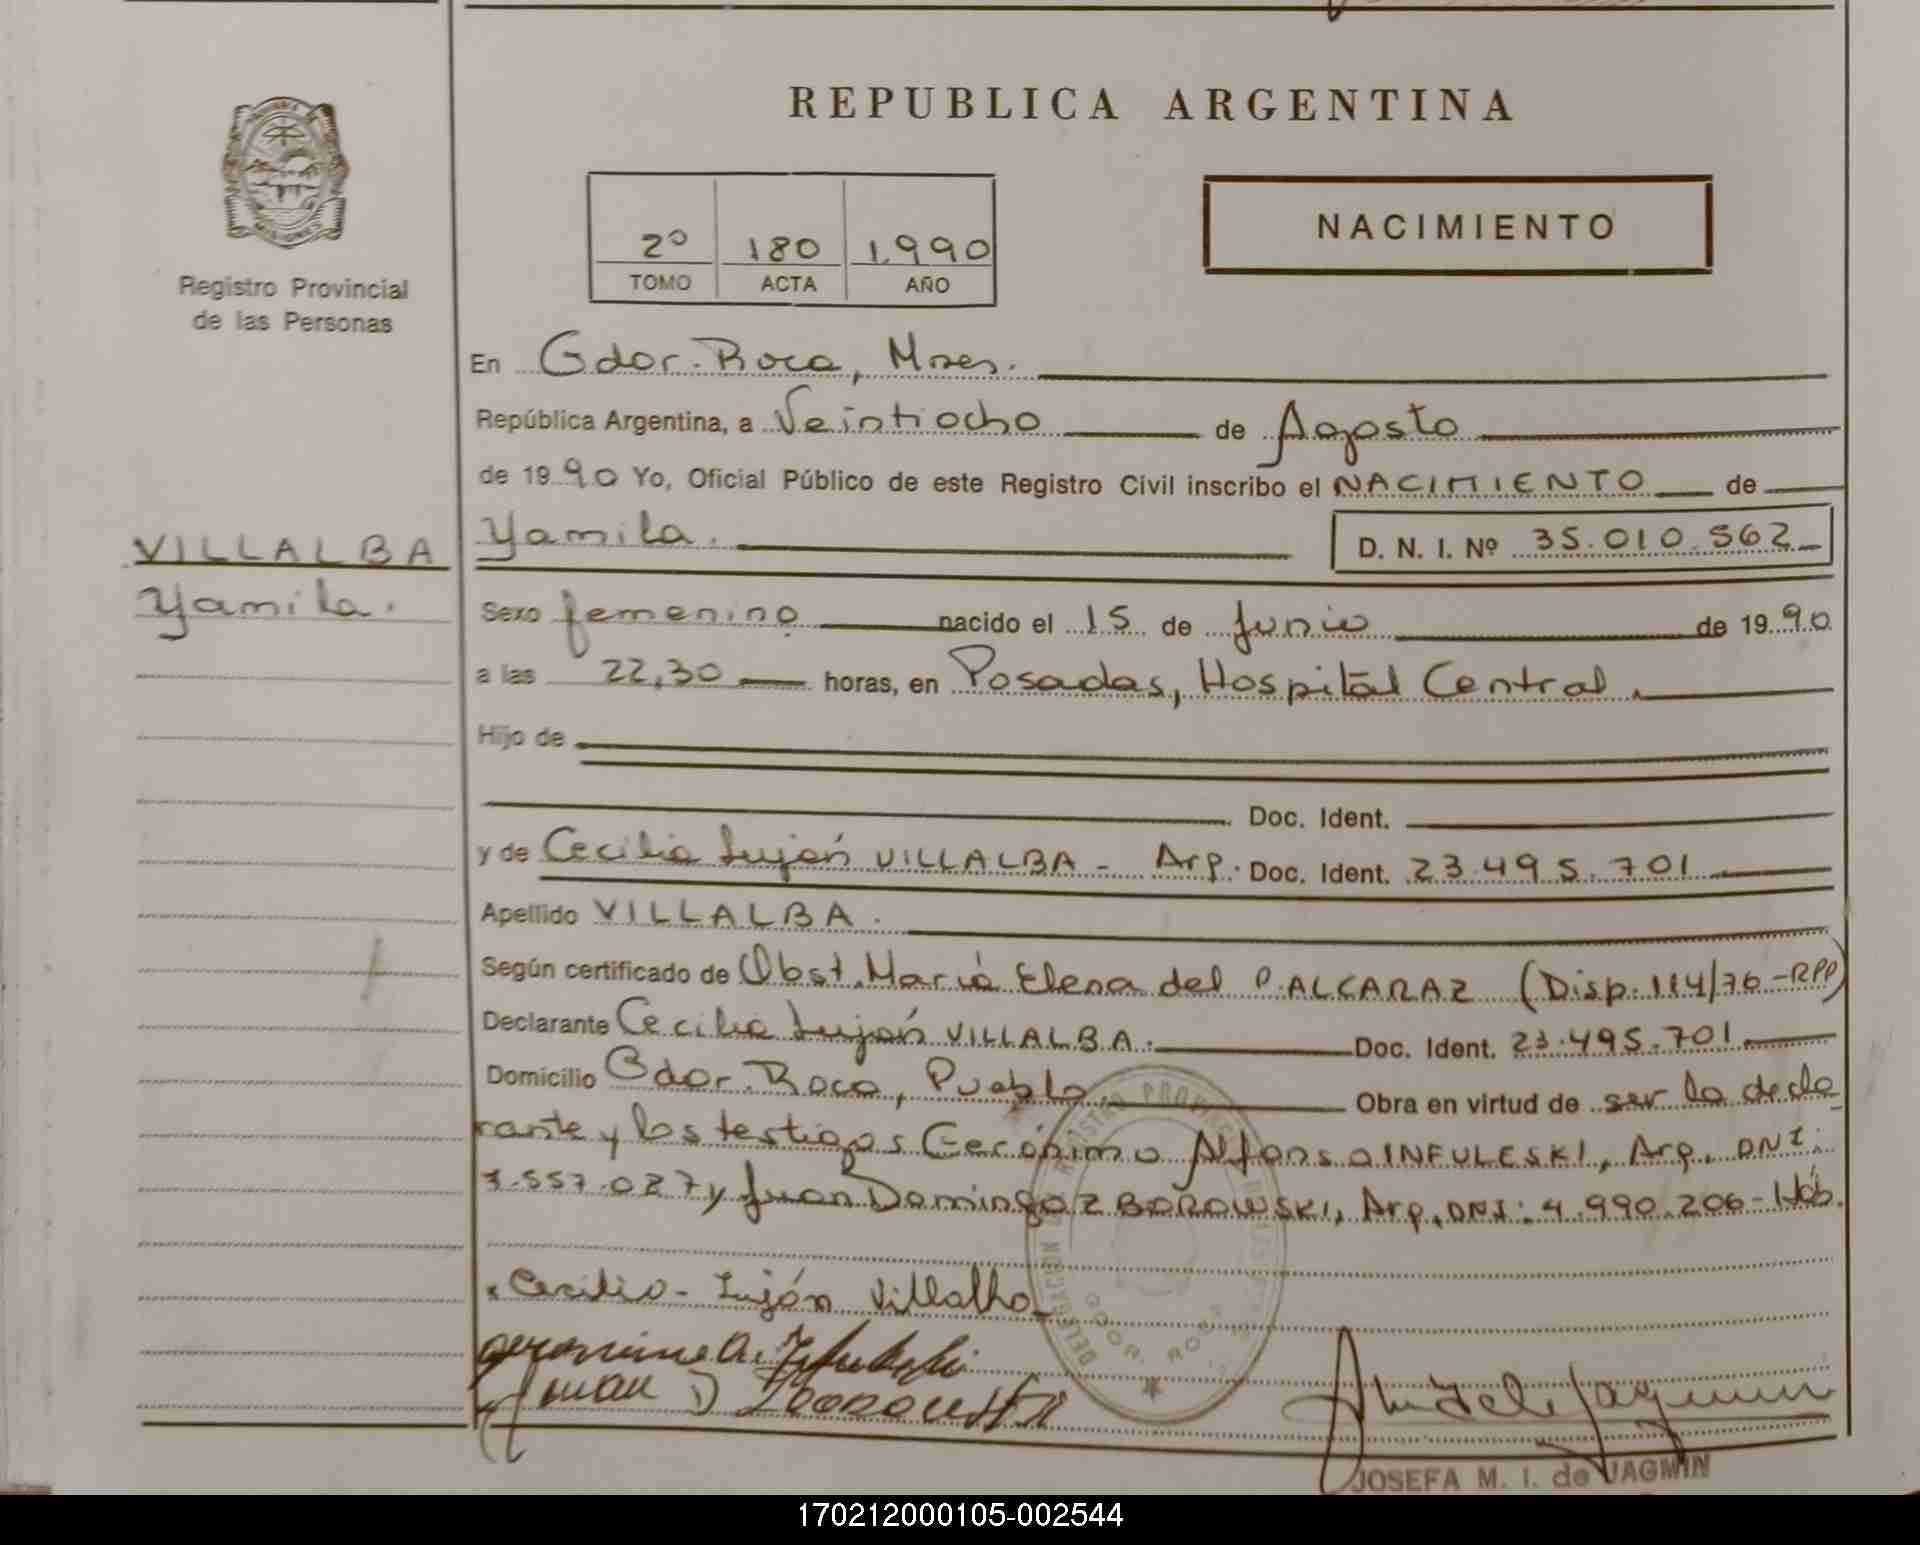 REPUBLICA ARGENTINA
MISIONES
Registro Provincial
de las Personas
2º 180 1.990
TOMO ACTA AÑO
NACIMIENTO
En Gdor. Roca, Mnes.
República Argentina, a Veintiocho de Agosto
de 1990 Yo, Oficial Público de este Registro Civil inscribo el NACIMIENTO de
VILLALBA
Yamila.
Yamila. D. N. I. Nº 35.010.562
Sexo femenino nacido el 15 de Junio de 1990
a las 22,30 horas, en Posadas, Hospital Central.
Hijo de
Doc. Ident.
y de Cecilia Luján VILLALBA - Arg. Doc. Ident. 23.495.701
Apellido VILLALBA.
Según certificado de Obst. María Elena del P. ALCARAZ (Disp. 114/76-RPP)
Declarante Cecilia Luján VILLALBA. Doc. Ident. 23.495.701
Domicilio Gdor. Roca, Pueblo, Obra en virtud de ser la decla
rante y los testigos Gerónimo Alfonso INFULESKI, Arg. DNI:
7.557.027 y Juan Domingo ZBOROWSKI, Arg. DNI: 4.990.206- Háb.
Cecilia - Luján Villalba
Geronimo A.
Juan D
DELEGACION GDOR. ROCA
JOSEFA M. I. de JAGMIN
170212000105-002544